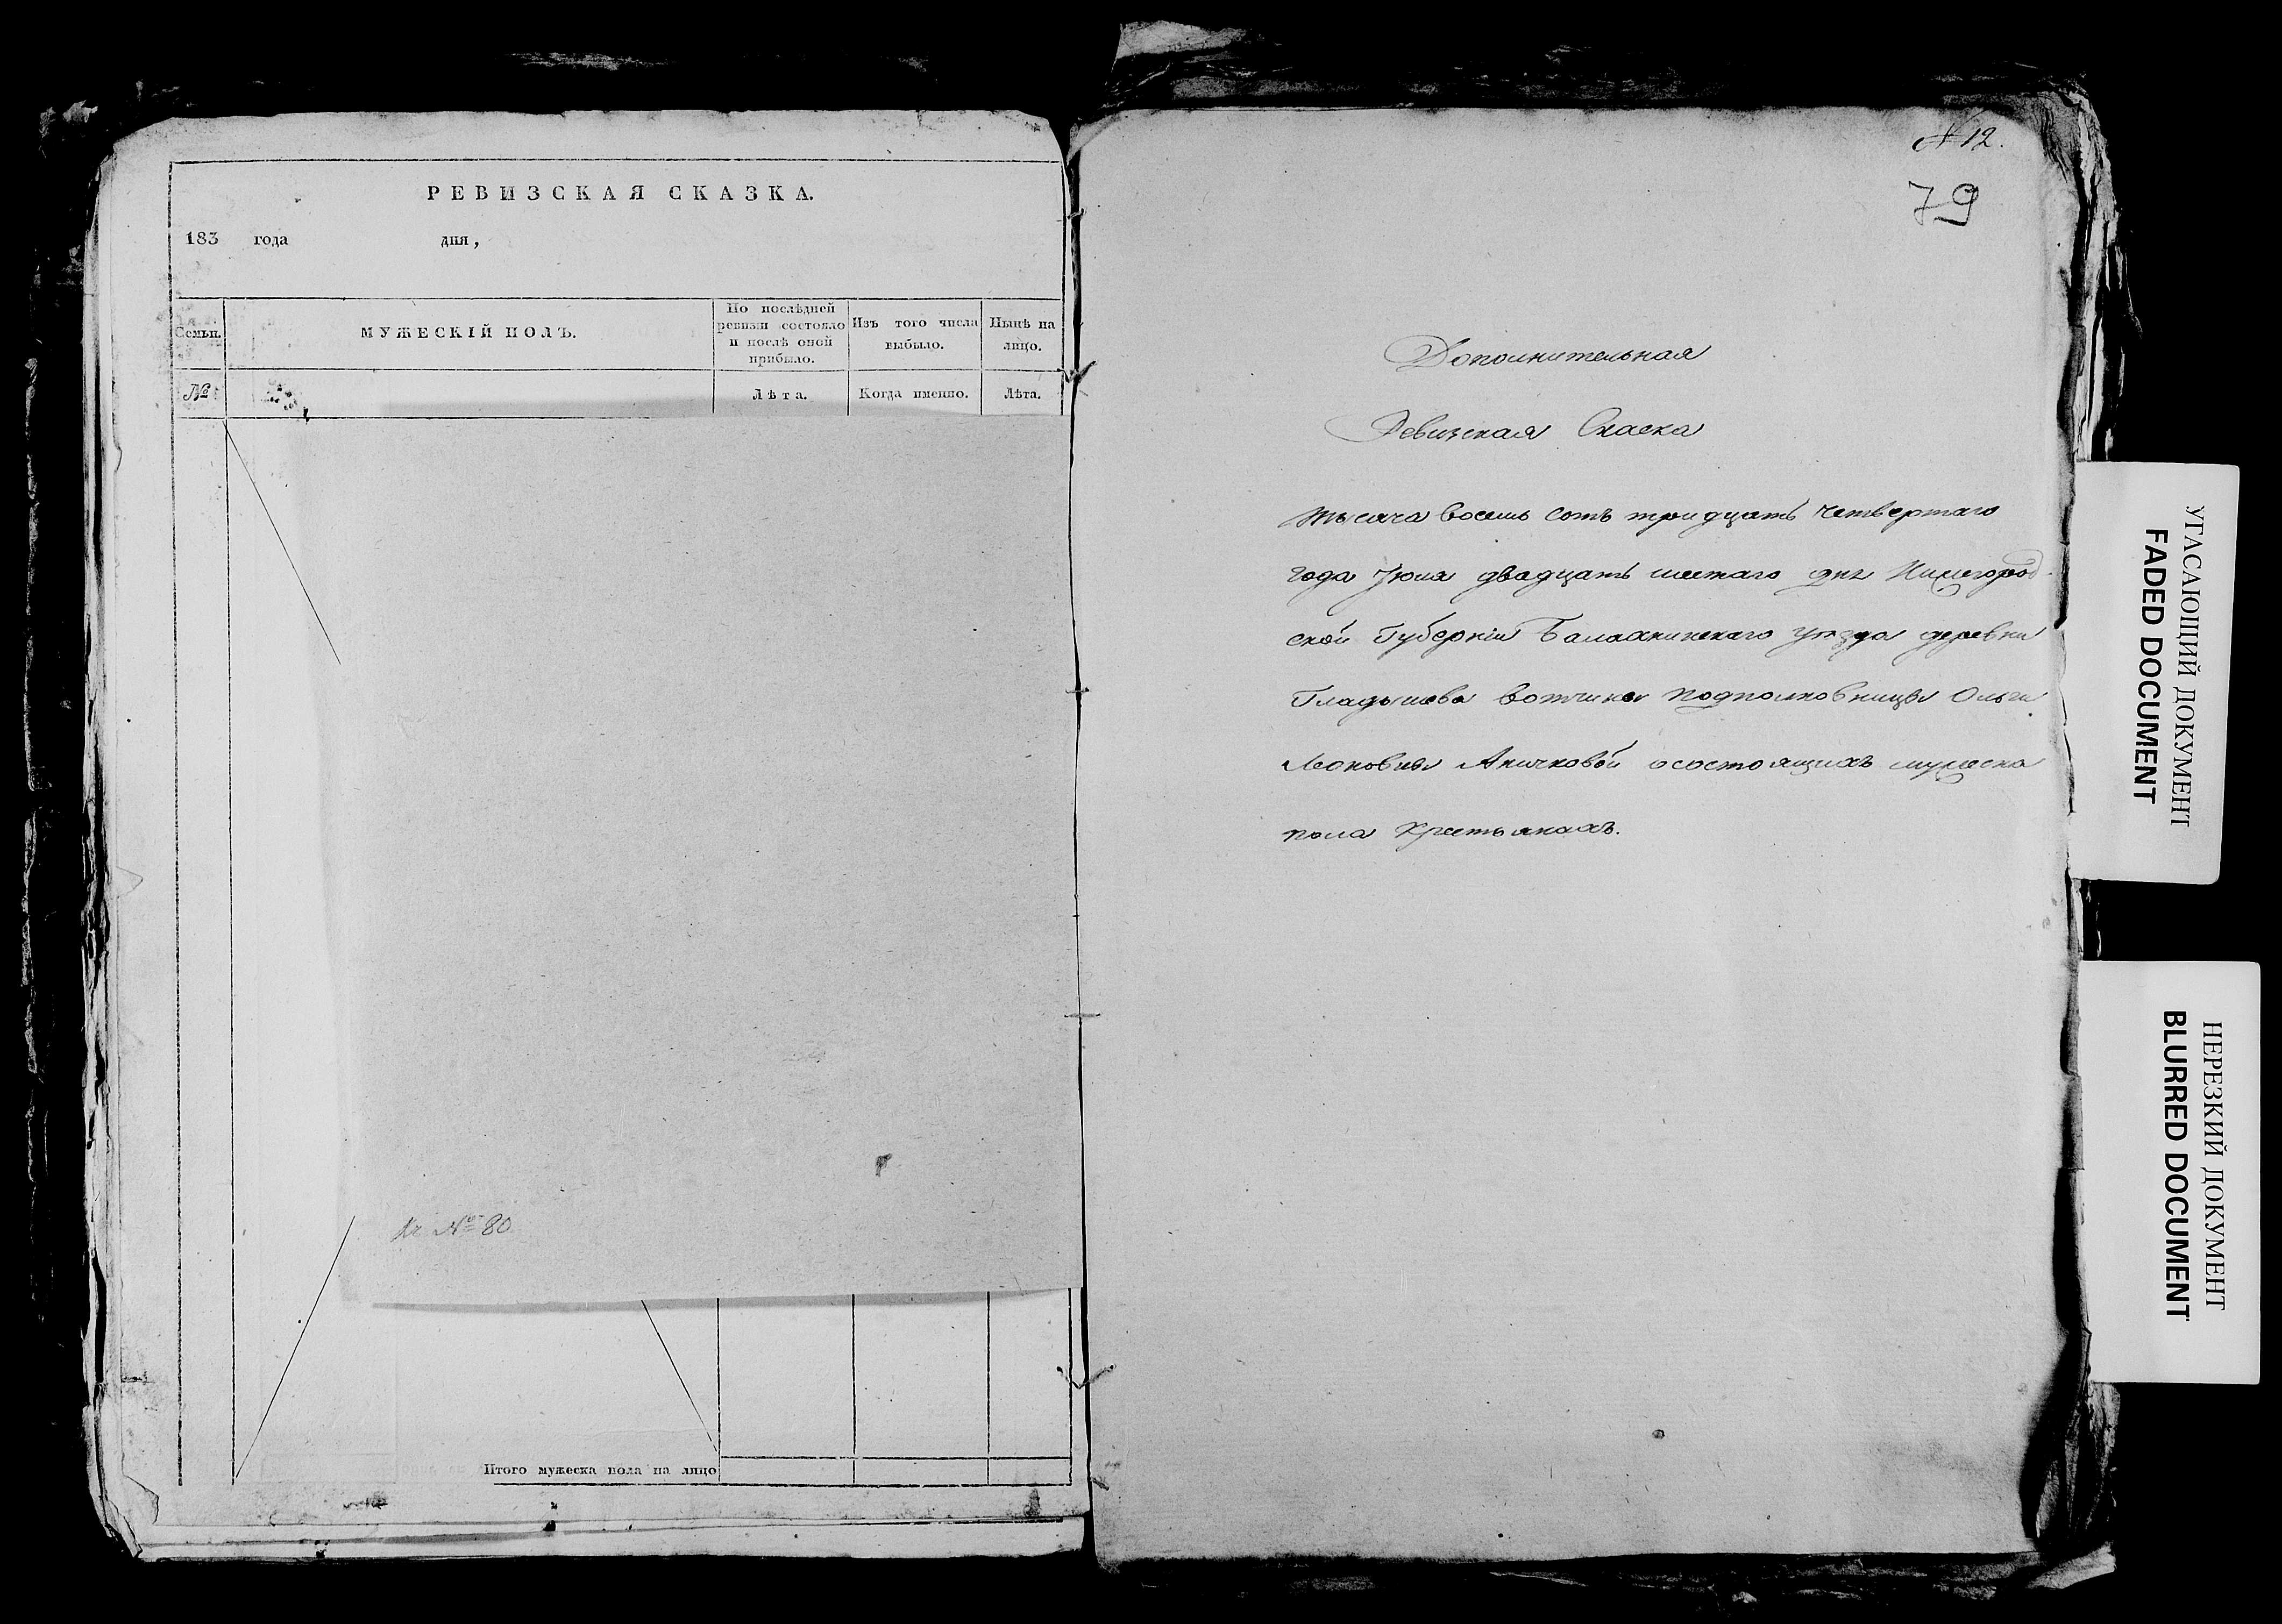 РЕВИЗСКАЯ СКАЗКА.
183 года дня,
Семьи.
МУЖЕСКІЙ ПОЛЪ.
По послѣдней ревизіи состояло и послѣ оной прибыло.
Изъ того числа выбыло.
Нынѣ на лицо.
№
Лѣта.
Когда именно.
Лѣта.
№ 80
Итого мужеска пола на лицо
№ 12.
79
Дополнительная
Ревизская Скаска
тысяча восемь сотъ тридцать четвертаго
года Іюля двадцать шестаго дня Нижегород-
ской Губерніи Балахнинскаго уѣзда деревни
Гладышева вотчины подполковницы Ольги
Леоновны Аничковой о состоящихъ мужеска
пола крестьянахъ.
УГАСАЮЩИЙ ДОКУМЕНТ
FADED DOCUMENT
НЕРЕЗКИЙ ДОКУМЕНТ
BLURRED DOCUMENT